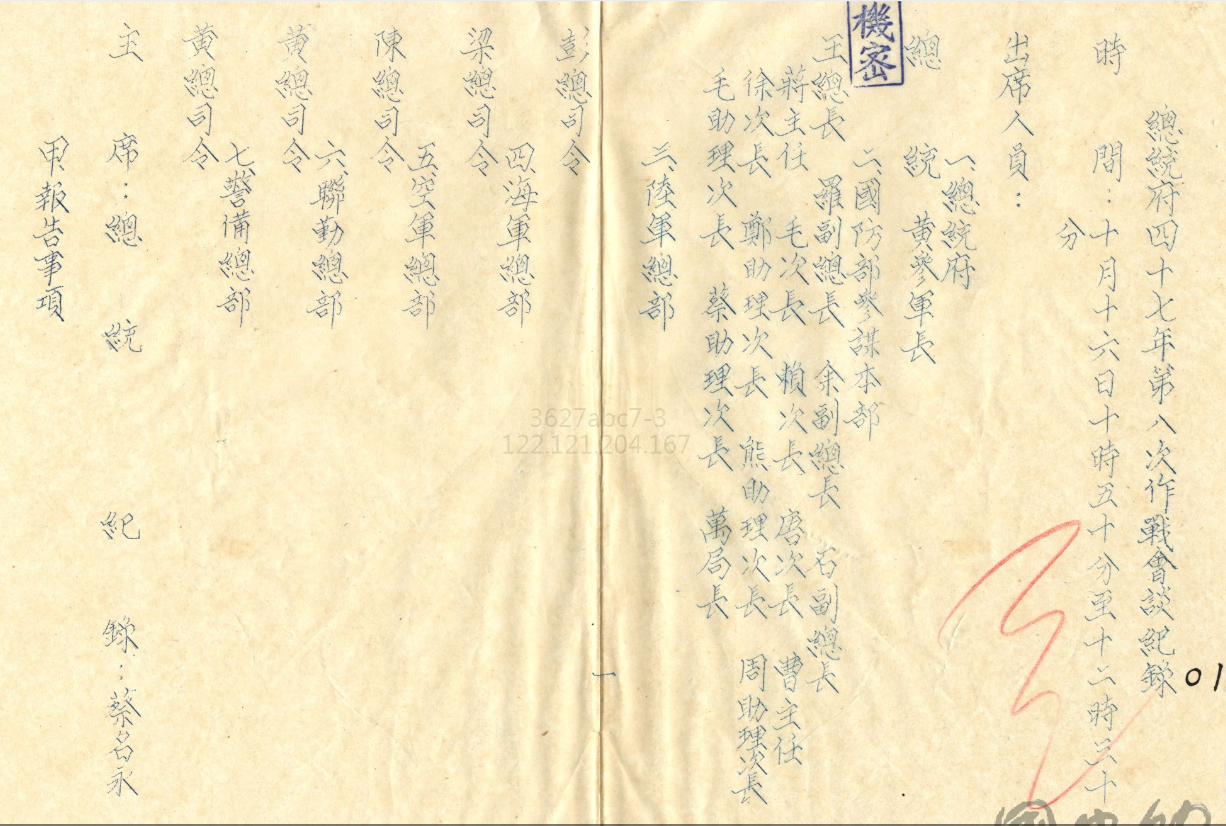 機密
01
總統府四十七年第八次作戰會談紀錄
時間：十月十六日十時五十分至十二時三十
分
出席人員：
一、總統府
總統　黃參軍長
二、國防部參謀本部
王總長　羅副總長　余副總長　石副總長
蔣主任　毛次長　賴次長　唐次長　曹主任
徐次長　鄭助理次長　熊助理次長　周助理次長
毛助理次長　蔡助理次長　萬局長
三、陸軍總部
一
彭總司令
四、海軍總部
梁總司令
五、空軍總部
陳總司令
六、聯勤總部
黃總司令
七、警備總部
黃總司令
主席：總統　紀錄：蔡名永
甲、報告事項
3627abc7-3
122.121.204.167